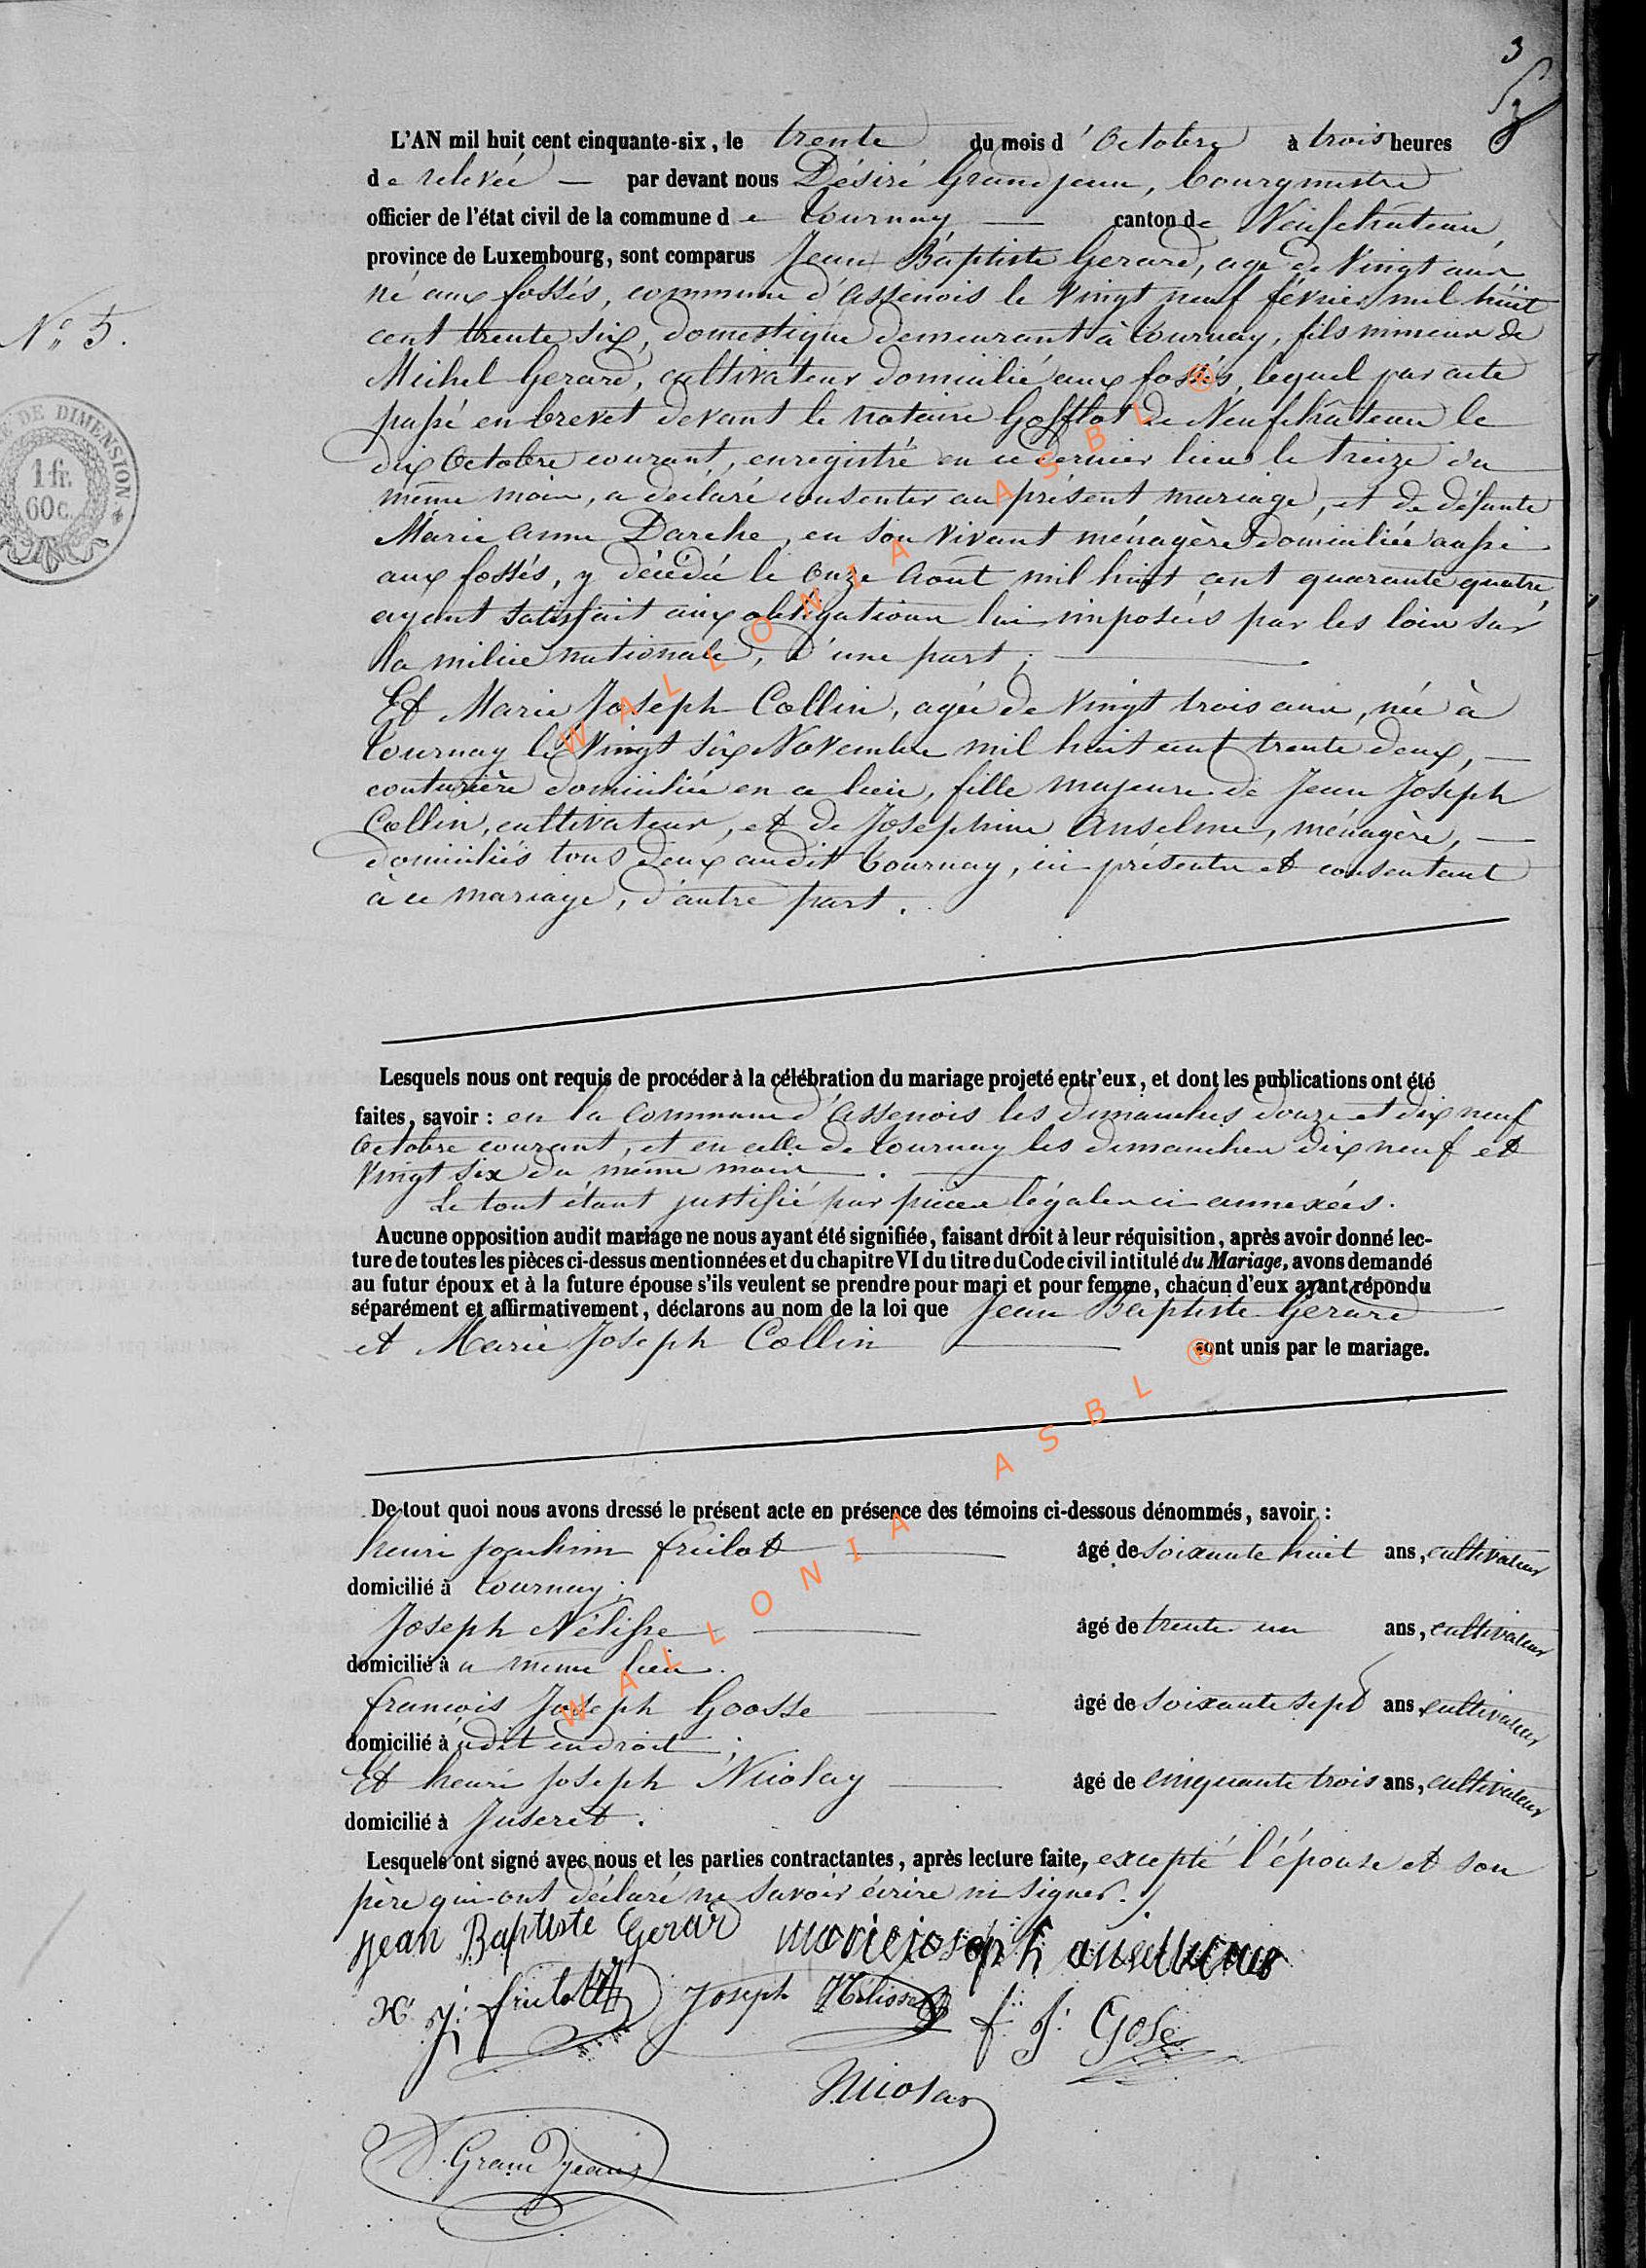 3
L'AN mil huit cent cinquante-six, le trente du mois d'Octobre à trois heures
de relevée — par devant nous Désiré Grandjean, bourgmestre
officier de l'état civil de la commune de Tournay — canton de Neufchâteau,
province de Luxembourg, sont comparus Jean Baptiste Gerard, agé de Vingt ans
né aux fossés, commune d'Assenois le vingt neuf février mil huit
N° 5.
cent trente six, domestique demeurant à Tournay, fils mineur de
Michel Gerard, cultivateur domicilié aux fossés, lequel par acte
passé en brevet devant le notaire Gofflot de Neufchâteau le
dix Octobre courant, enregistré en ce dernier lieu le treize du
même mois, a declaré consenter au présent mariage, et de défunte
Marie Anne Darche, en son vivant ménagère domiciliée aussi
aux fossés, y décédée le Onze Août mil huit cent quarante quatre,
ayant satisfait aux obligations lui imposées par les lois sur
la milice nationale, d'une part; —
Et Marie Joseph Collin, agée de Vingt trois ans, née à
Tournay le Vingt six Novembre mil huit cent trente deux, —
couturière domiciliée en ce lieu, fille majeure de Jean Joseph
Collin, cultivateur, et de Josephine Anselme, ménagère, —
domiciliés tous deux audit Tournay, ici présents et consentant
à ce mariage, d'autre part.
DE DIMENSION
1 fr.
60 c.
Lesquels nous ont requis de procéder à la célébration du mariage projeté entr'eux, et dont les publications ont été
faites, savoir : en la Commune d'Assenois les dimanches douze et dix neuf
Octobre courant, et en celle de Tournay les dimanches dix neuf et
Vingt six du même mois.
Le tout étant justifié par pièces légales ci annexées.
Aucune opposition audit mariage ne nous ayant été signifiée, faisant droit à leur réquisition, après avoir donné lec-
ture de toutes les pièces ci-dessus mentionnées et du chapitre VI du titre du Code civil intitulé du Mariage, avons demandé
au futur époux et à la future épouse s'ils veulent se prendre pour mari et pour femme, chacun d'eux ayant répondu
séparément et affirmativement, déclarons au nom de la loi que Jean Baptiste Gerard
et Marie Joseph Collin — sont unis par le mariage.
De tout quoi nous avons dressé le présent acte en présence des témoins ci-dessous dénommés, savoir :
henri joachim frilot — âgé de soixante huit ans, cultivateur
domicilié à Tournay;
Joseph Nélisse — âgé de trente un ans, cultivateur
domicilié à ce même lieu.
françois Joseph Goosse — âgé de soixante sept ans, cultivateur
domicilié à udit endroit;
Et henri joseph Nicolay — âgé de cinquante trois ans, cultivateur
domicilié à Juseret.
Lesquels ont signé avec nous et les parties contractantes, après lecture faite, excepté l'épouse et son
père qui ont déclaré ne savoir écrire ni signer.
jean Baptiste Gerard marie joseph anselme
h. j. frilot Joseph Nélisse f. j. Gose
Nicolas
D. Grandjean
WALLONIA ASBL ®
WALLONIA ASBL ®